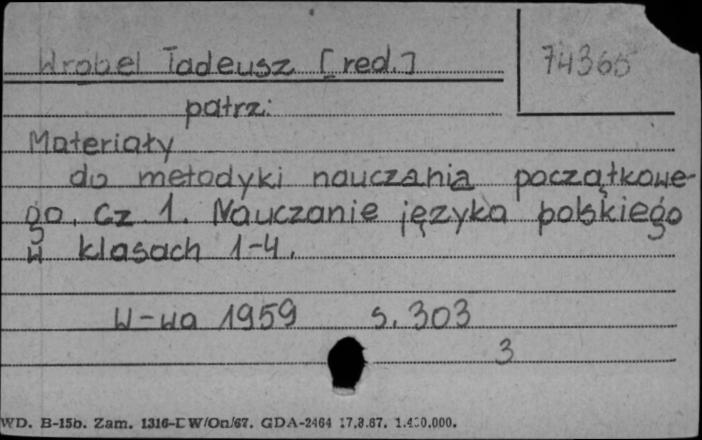 Wróbel Tadeusz [red.]
74365
patrz:
Materiały
do metodyki nauczania początkowe-
go. Cz 1. Nauczanie języka polskiego
w klasach 1-4.
W-wa 1959 s. 303
3
WD. B-15b. Zam. 1316-DW/On/67. GDA-2464 17.3.67.